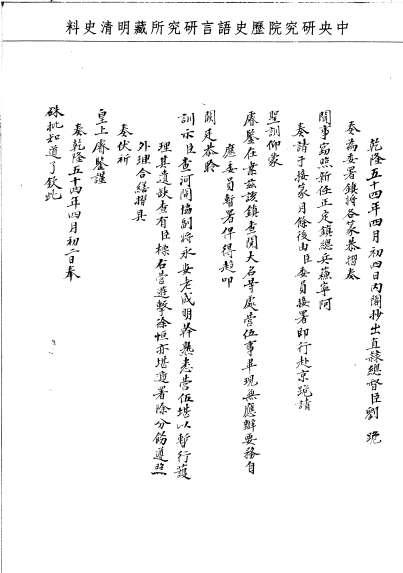 中央研究院歷史語言研究所藏明清史料
乾隆五十四年四月初四日內閣抄出直隸總督臣劉 跪
奏為委署鎮將各篆恭摺奏
聞事竊照新任正定鎮總兵蘇寧阿
奏請于接篆月餘後由臣委員接署即行赴京跪請
聖訓仰蒙
睿鑒在案茲該鎮查閱大名等處營伍事畢現無應辦要務自
應委員暫署俾得趨叩
闕廷恭聆
訓示臣查河間協副將永安老成明幹熟悉營伍堪以暫行護
理其遺缺查有臣標右營遊擊涂恒亦堪遞署除分飭遵照
外理合繕摺具
奏伏祈
皇上睿鑒謹
奏乾隆五十四年四月初二日奉
硃批知道了欽此